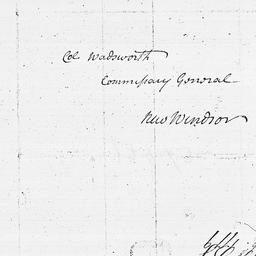 Col Wadsworth
Commissary General
New Windsor